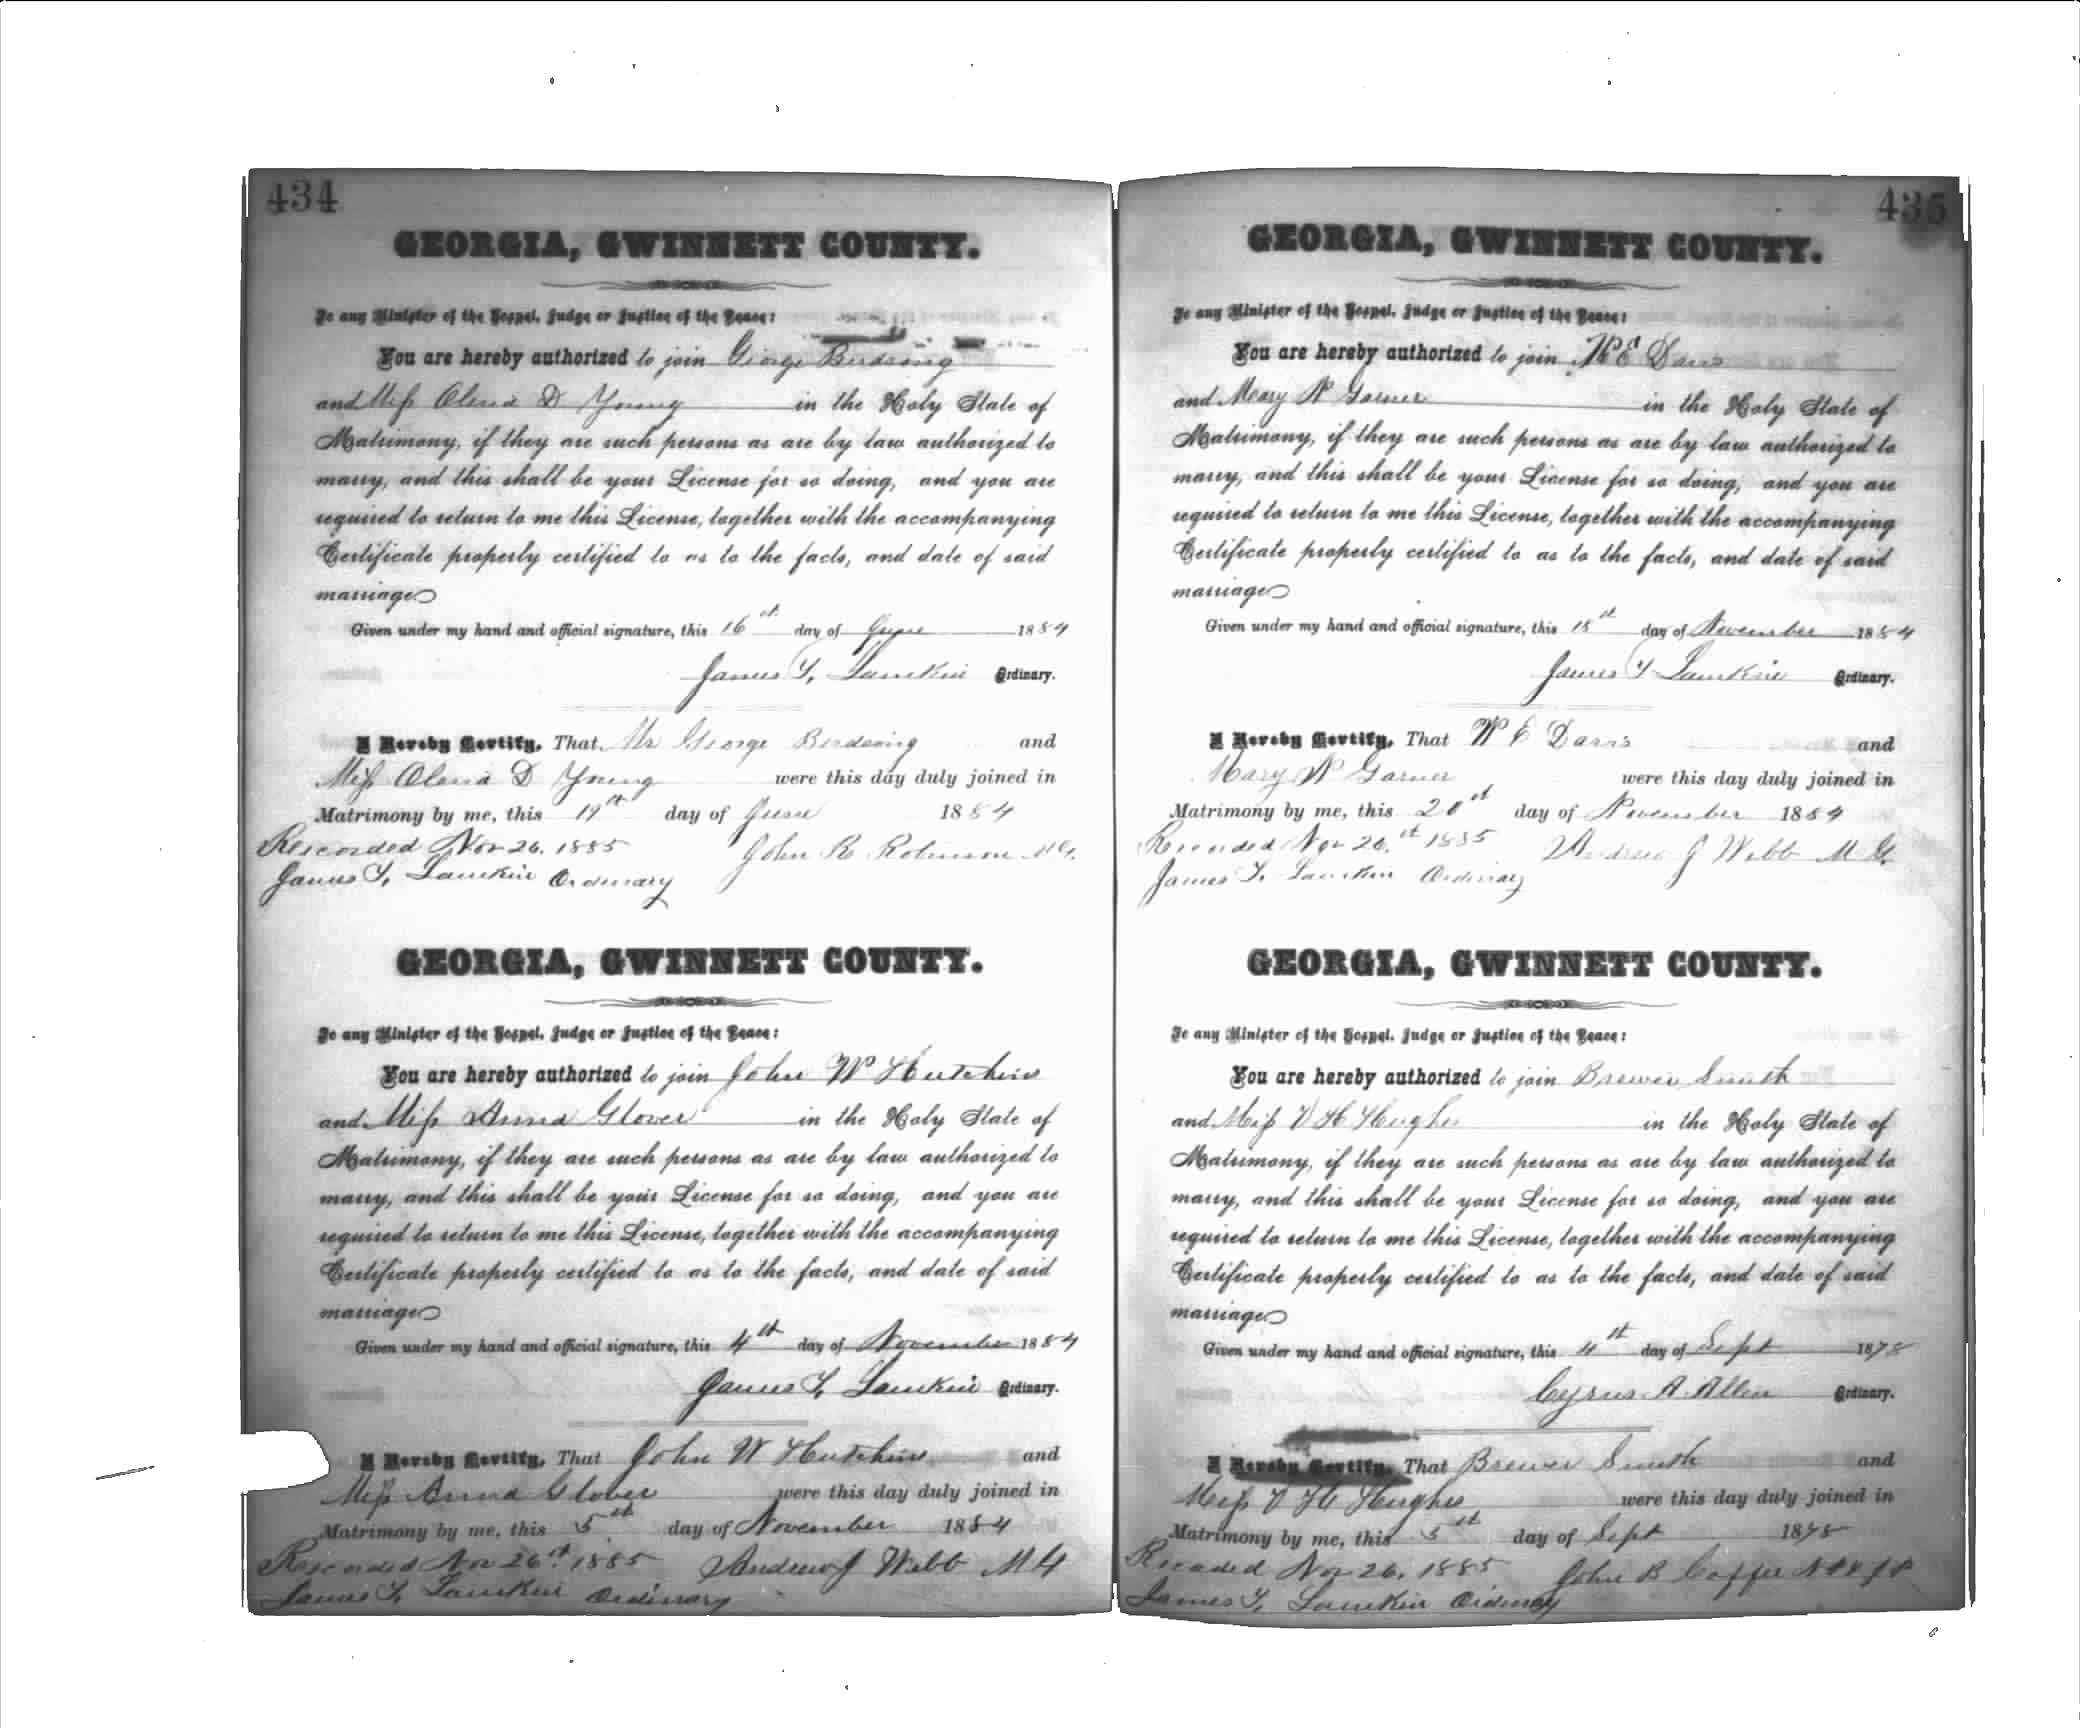 434
GEORGIA, GWINNETT COUNTY.
To any Minister of the Gospel, Judge or Justice of the Peace:
You are hereby authorized to join George Birdsong
and Miss Olena D Young in the Holy State of
Matrimony, if they are such persons as are by law authorized to
marry, and this shall be your License for so doing, and you are
required to return to me this License, together with the accompanying
Certificate properly certified to as to the facts, and date of said
marriage
Given under my hand and official signature, this 16th day of June 1884
James T. Lamkin Ordinary.
I Hereby Certify, That Mr George Birdsong and
Miss Olena D Young were this day duly joined in
Matrimony by me, this 19th day of June 1884
Recorded Nov 26. 1885 John R Robinson M.G.
James T. Lamkin Ordinary
GEORGIA, GWINNETT COUNTY.
To any Minister of the Gospel, Judge or Justice of the Peace:
You are hereby authorized to join John W Hutchins
and Miss Anna Glover in the Holy State of
Matrimony, if they are such persons as are by law authorized to
marry, and this shall be your License for so doing, and you are
required to return to me this License, together with the accompanying
Certificate properly certified to as to the facts, and date of said
marriage
Given under my hand and official signature, this 4th day of November 1884
James T. Lamkin Ordinary.
I Hereby Certify, That John W Hutchins and
Miss Anna Glover were this day duly joined in
Matrimony by me, this 5th day of November 1884
Recorded Nov 26th 1885 Andrew J Webb M G
James T. Lamkin Ordinary
435
GEORGIA, GWINNETT COUNTY.
To any Minister of the Gospel, Judge or Justice of the Peace:
You are hereby authorized to join W E Davis
and Mary N Garner in the Holy State of
Matrimony, if they are such persons as are by law authorized to
marry, and this shall be your License for so doing, and you are
required to return to me this License, together with the accompanying
Certificate properly certified to as to the facts, and date of said
marriage
Given under my hand and official signature, this 18th day of November 1884
James T Lamkin Ordinary.
I Hereby Certify, That W E Davis and
Mary N Garner were this day duly joined in
Matrimony by me, this 20th day of November 1884
Recorded Nov 26th 1885 Andrew J Webb M G.
James T. Lamkin Ordinary
GEORGIA, GWINNETT COUNTY.
To any Minister of the Gospel, Judge or Justice of the Peace:
You are hereby authorized to join Brewer Smith
and Miss V H Hughes in the Holy State of
Matrimony, if they are such persons as are by law authorized to
marry, and this shall be your License for so doing, and you are
required to return to me this License, together with the accompanying
Certificate properly certified to as to the facts, and date of said
marriage
Given under my hand and official signature, this 4th day of Sept 1878
Cyrus A. Allen Ordinary.
I Hereby Certify, That Brewer Smith and
Miss V H Hughes were this day duly joined in
Matrimony by me, this 5th day of Sept 1878
Recorded Nov 26. 1885 John B
James T. Lamkin Ordinary